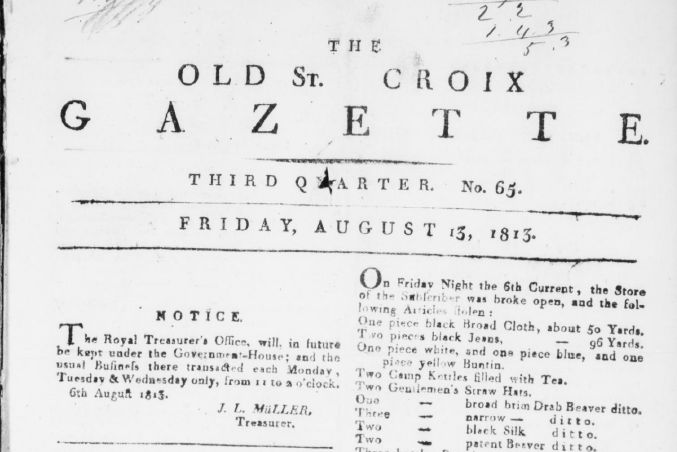 2.2
1.4.3
5.3
THE
OLD St. CROIX
GAZETTE.
THIRD QUARTER. No. 65.
FRIDAY, AUGUST 13, 1813.
NOTICE.
The Royal Treasurer's Office, will, in future
be kept under the Government-House; and the
usual Businefs there transacted each Monday,
Tuesday & Wednesday only, from 11 to 2 o'clock.
6th Auguſt 1813.
J. L. MüLLER,
Treasurer.
On Friday Night the 6th Current, the Store
of the Subſcriber was broke open, and the fol-
lowing Articles ſtolen:
One piece black Broad Cloth, about 50 Yards.
Two pieces black Jeans, — 96 Yards.
One piece white, and one piece blue, and one
piece yellow Buntin.
Two Camp Kettles filled with Tea.
Two Gentlemen's Straw Hats.
One — broad brim Drab Beaver ditto.
Three — narrow — ditto.
Two — black Silk ditto.
Two — patent Beaver ditto.